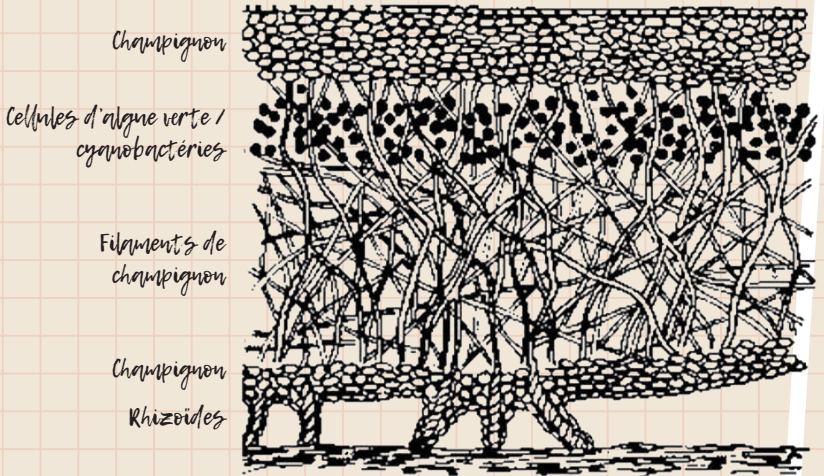 Champignon
Cellules d'algue verte /
cyanobactéries
Filaments de
champignon
Champignon
Rhizoïdes